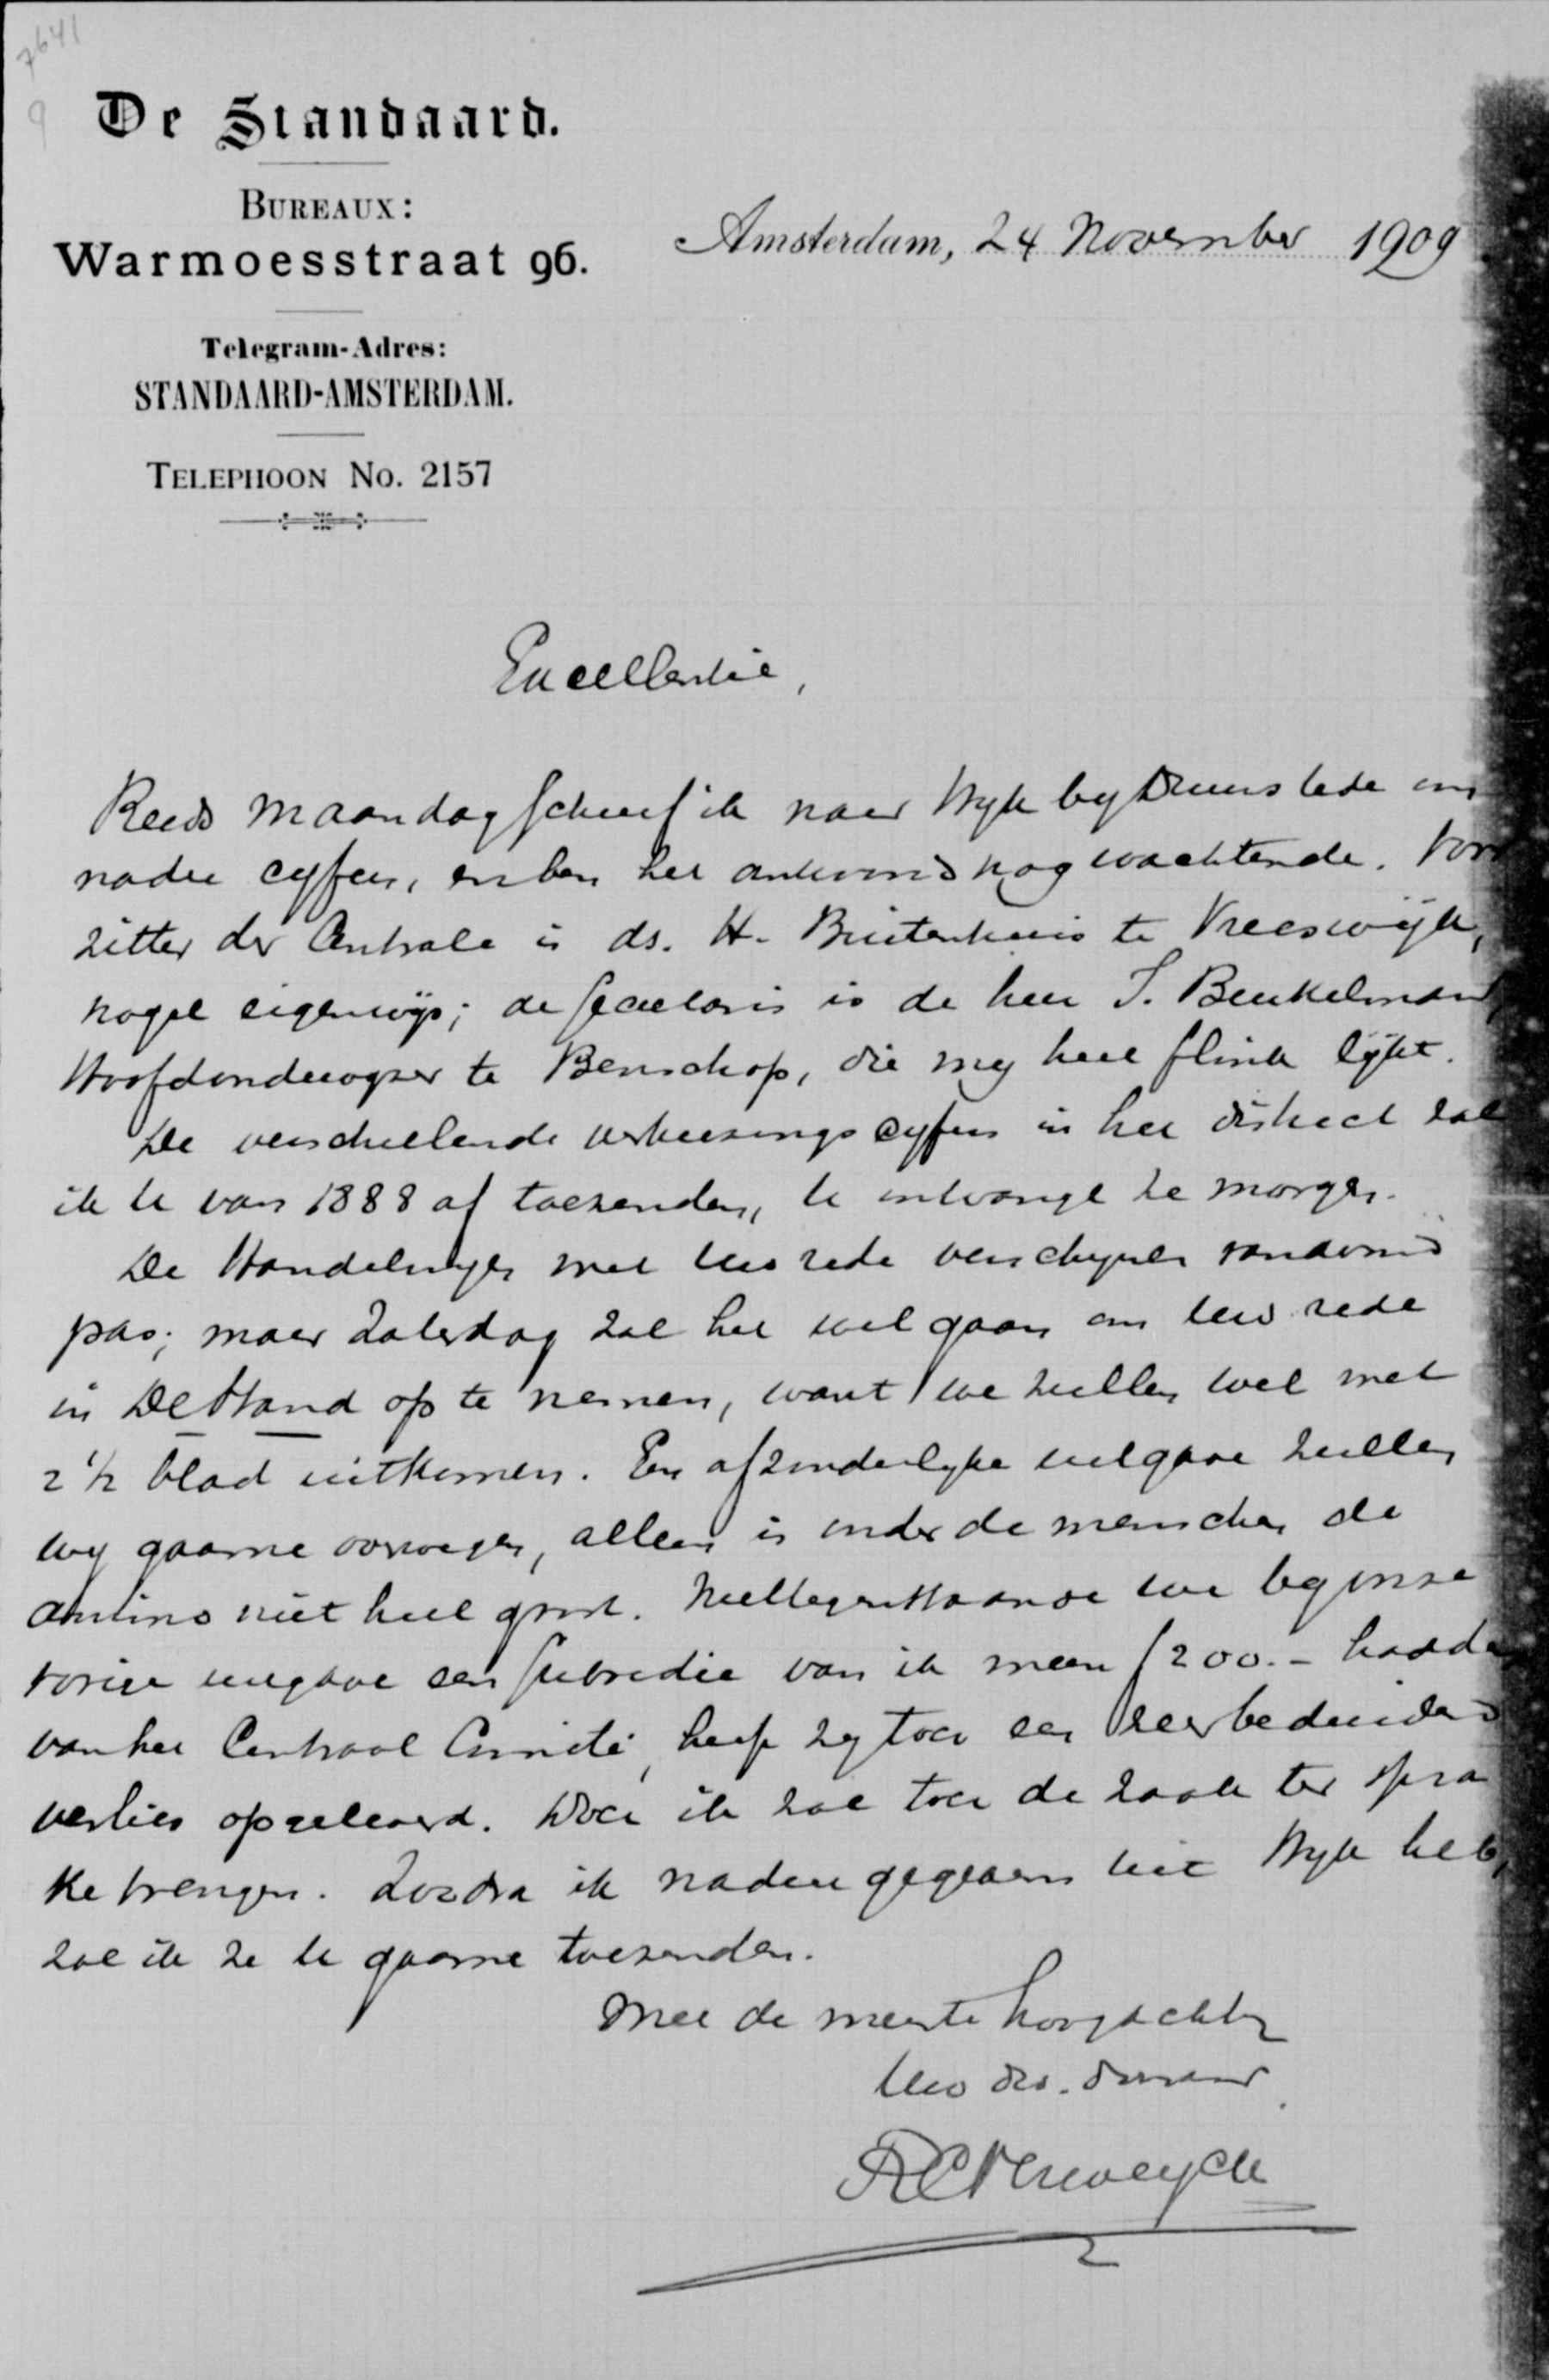 7641
9
De Standaard.
BUREAUX:
Warmoesstraat 96.
Amsterdam, 24 November 1909
Telegram-Adres:
STANDAARD-AMSTERDAM.
TELEPHOON No. 2157
Excellentie,
Reeds Maandag schreef ik naar Wyk by Duurstede om
nadere cyfers, en ben het antwoord nog wachtende. Voor
zitter der Centrale is ds. H. Buitenhuis te Vreeswijk,
nogal eigenwijs; de secretaris is de heer J. Beukelman,
Hoofdonderwyzer te Benschop, die my heel flink lijkt.
De verschillende verkiezingscyfers in het district zal
ik U van 1888 af toezenden, U ontvangt ze morgen.
De Handelingen met Uw rede verschynen vanavond
pas; maar Zaterdag zal het wel gaan om Uw rede
in De Stand op te nemen, want we zullen wel met
2 1/2 blad uitkomen. Een afzonderlyke uitgave zullen
wy gaarne overwegen, alleen is onder de menschen de
animo niet heel groot. Niettegenstaande we by onze
vorige uitgave een subsidie van ik meen f 200.- hadden
van het Centraal Comité, heeft zy toch een zeer beduidend
verlies opgeleverd. Doch ik zal toch de zaak ter spra
ke brengen. Zoodra ik nadere gegevens uit Wyk heb,
zal ik ze U gaarne toezenden.
Met de meeste hoogachting
Uw dw. dienaar
RCVerweyck